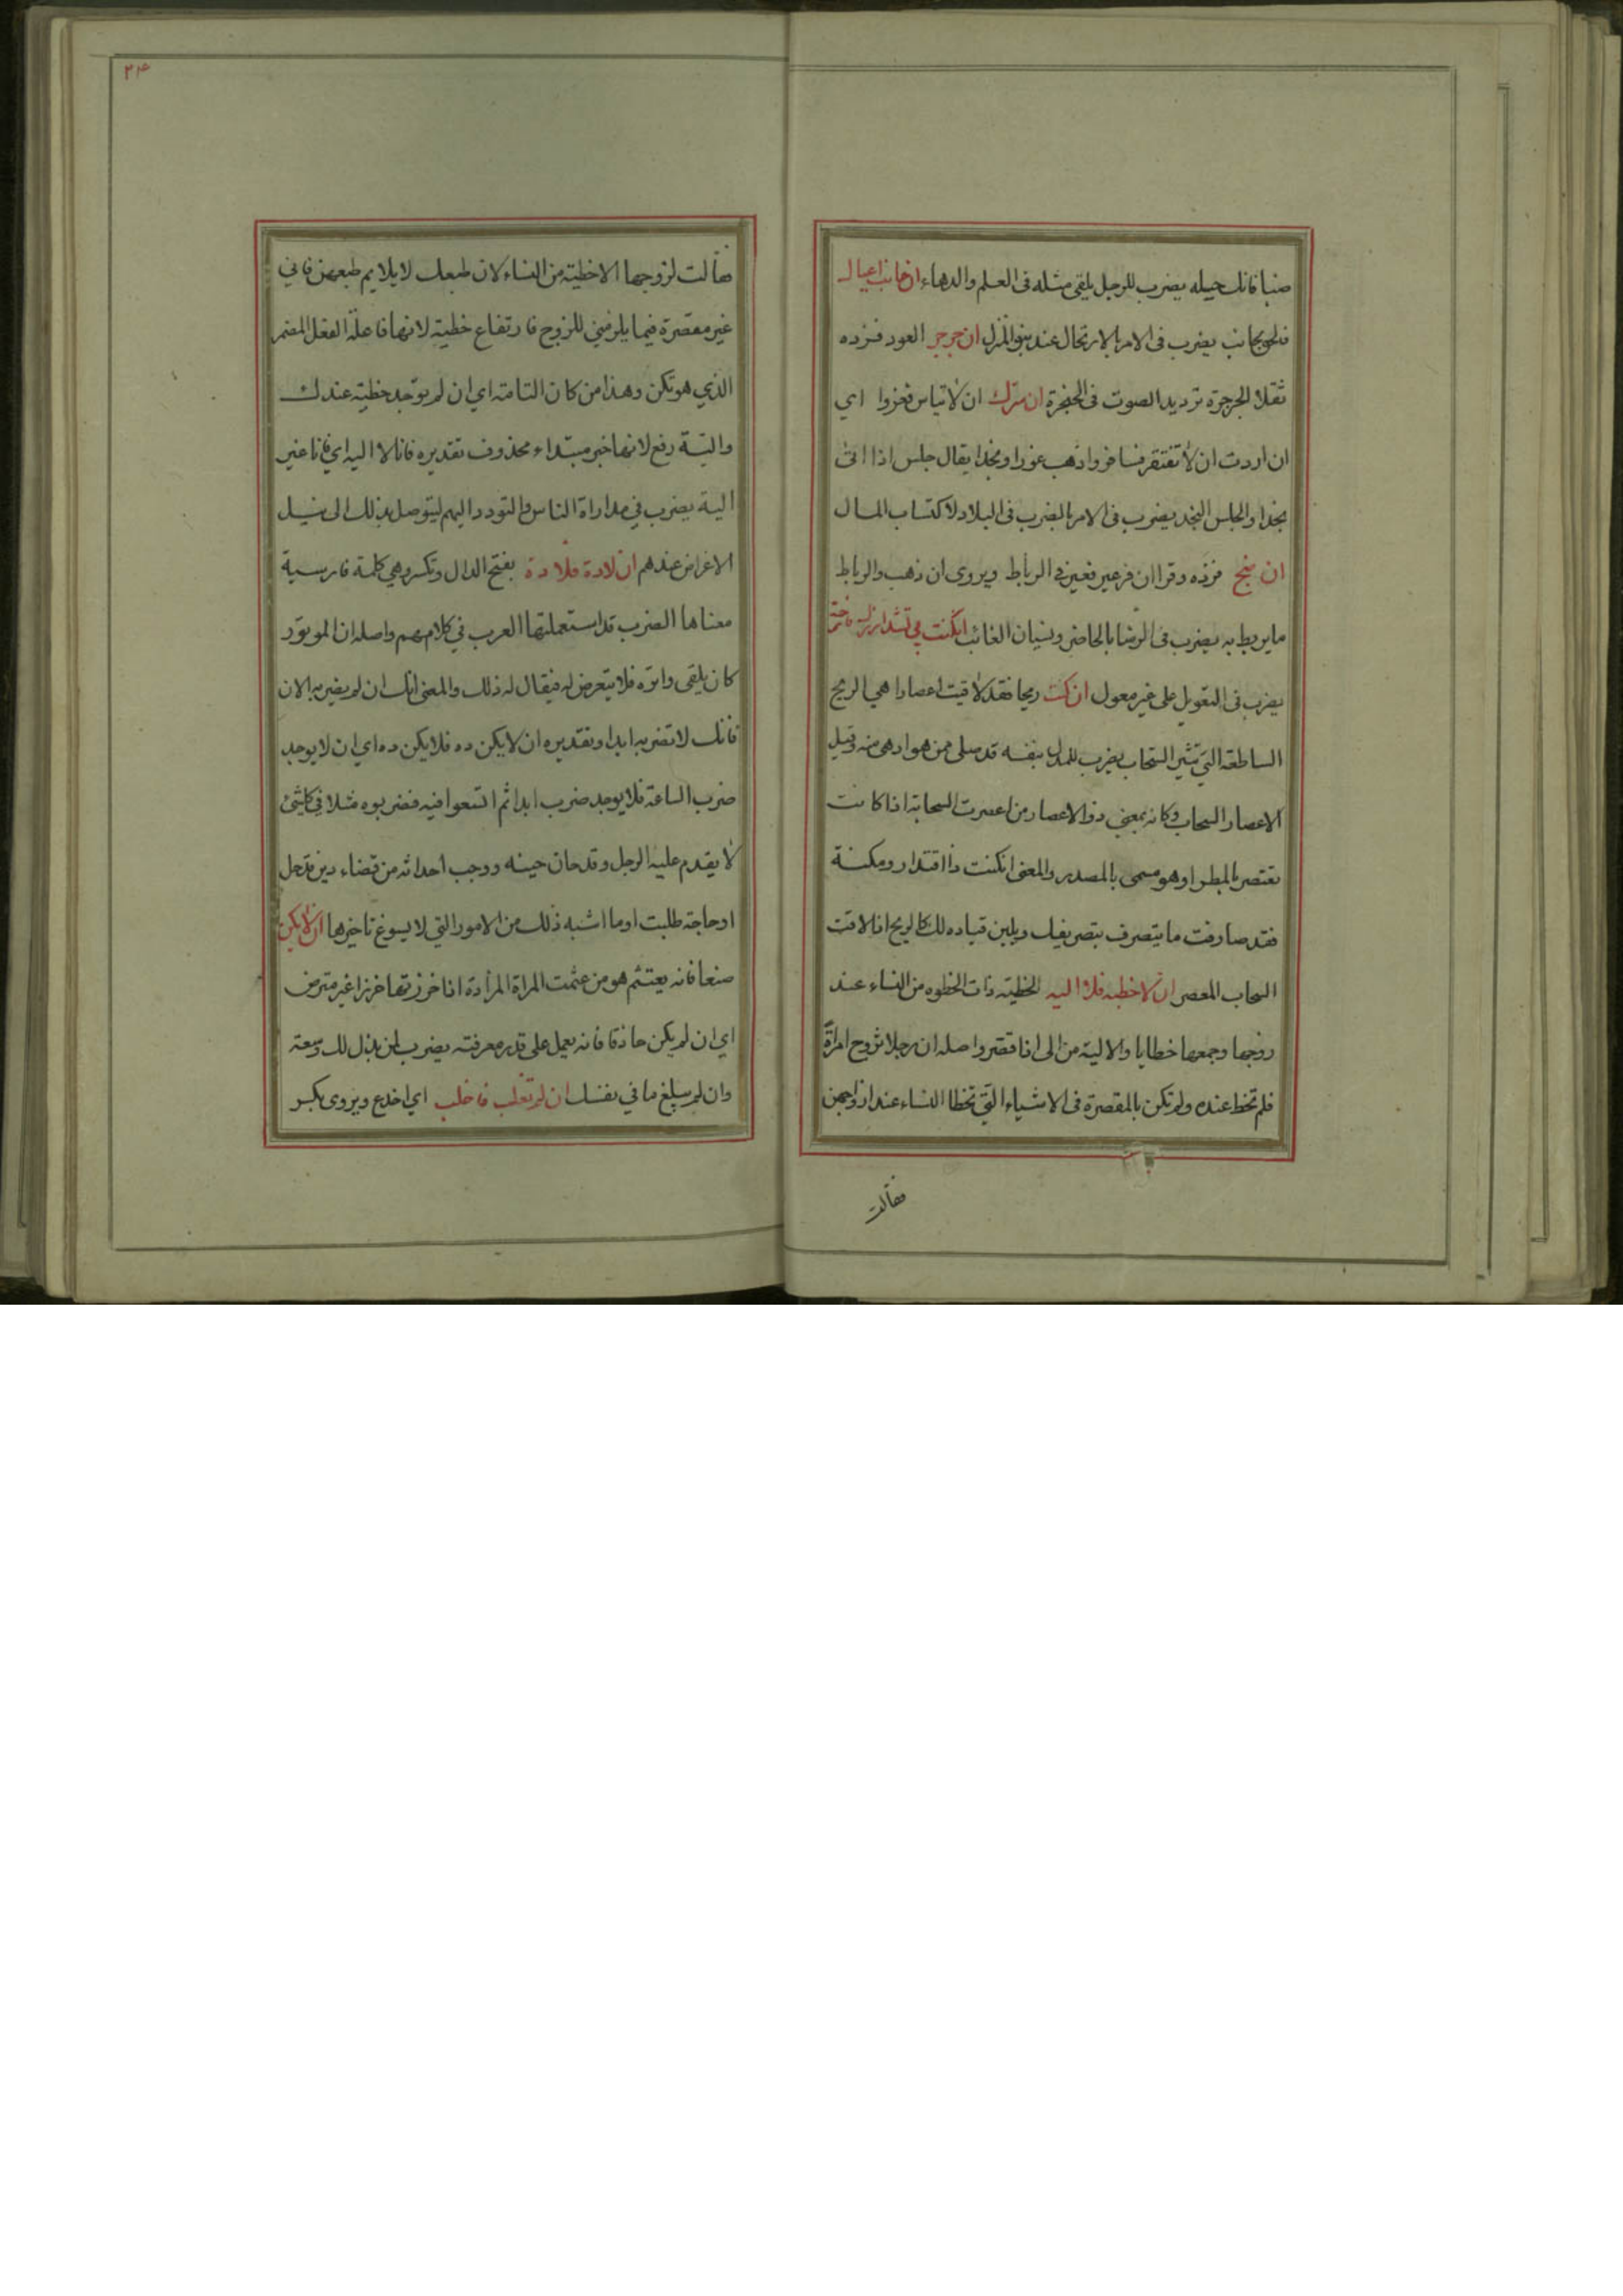 ضبا فانك حيله يضرب للرجل يلقى مثله فى العلم والدهاء ان جانب اعيال
فلحق بجانب يضرب فى الامر بالارتحال عند نبو المنزل ان جرجر العود فزده
ثقلا الجرجرة ترديد الصوت فى الحنجرة ان سرك ان لا تياس فغزوا اي
ان اردت ان لا تفتقر فسافر واذهب غورا ونجدا يقال جلس اذا اتى
نجدا والجلس النجد يضرب فى الامر بالضرب فى البلاد لاكتساب المال
ان ضج فزده وقرا ان فر عير فعير فى الرباط ويروى ان ذهب والرباط
ما يربط به يضرب فى الرضا بالحاضر ونسيان الغائب ان كنت بي تشد ازرك فارخه
يضرب فى التعويل على غير معول ان كنت ريحا فقد لاقيت اعصارا هي الريح
الساطعة التي تثير السحاب يضرب للمدل بنفسه قد صلى ممن هو ادهى منه وقيل
الاعصار السحاب وكانه بمعنى ذو الاعصار من اعصرت السحابة اذا كانت
تعتصر بالمطر او هو مسمى بالمصدر والمعنى ان كنت ذا اقتدار ومكنة
فقد صادفت ما يتصرف بتصريفك ويلين قياده لك كالريح اذا لاقت
السحاب المعصر ان لا خطيه فلا اليه الخطية ذات الخطوه من النساء عند
زوجها وجمعها خطايا والالية من الى اذا قصر واصله ان رجلا تزوج امراة
فلم تخط عنده ولم تكن بالمقصرة فى الاشياء التي تخطا النساء عند ازواجهن
فقالت
٢٤
فقالت لزوجها الا خطية من النساء لان طبعك لا يلايم طبعهن فاني
غير مقصرة فيما يلزمني للزوج فارتفاع خطية لانها فاعلة الفعل المضمر
الذي هو تكن وهذا من كان التامة اي ان لم توجد خطية عندك
والية رفع لانها خبر مبتداء محذوف تقديره فانا لا اليه اي فانا غير
الية يضرب في مداراة الناس والتودد اليهم ليتوصل بذلك الى نيل
الاغراض عندهم ان لادة فلا دة بفتح الدال وتكسر وهي كلمة فارسية
معناها الضرب قد استعملتها العرب في كلامهم واصله ان الموتور
كان يلقى واتره فلا يتعرض له فيقال له ذلك والمعنى انك ان لم يضربه الان
فانك لا تضربه ابدا وتقديره ان لا يكن ده فلا يكن ده اي ان لا يوجد
ضرب الساعة فلا يوجد ضرب ابدا ثم اتسعوا فيه فضربوه مثلا في كل شئ
لا يقدم عليه الرجل وقد حان حينه ووجب احداثه من قضاء دين قد حل
او حاجة طلبت او ما اشبه ذلك من الامور التي لا يسوغ تاخيرها ان لا يكن
صنعا فانه يعتثم هو من عثمت المراة المزادة اذا خرزتها خرزا غير
اي ان لم يكن حاذقا فانه يعمل على قدر معرفته يضرب لمن بذل لك وسعه
وان لم يبلغ ما في نفسك ان لم تغلب فاخلب اي اخدع ويروى بكسر